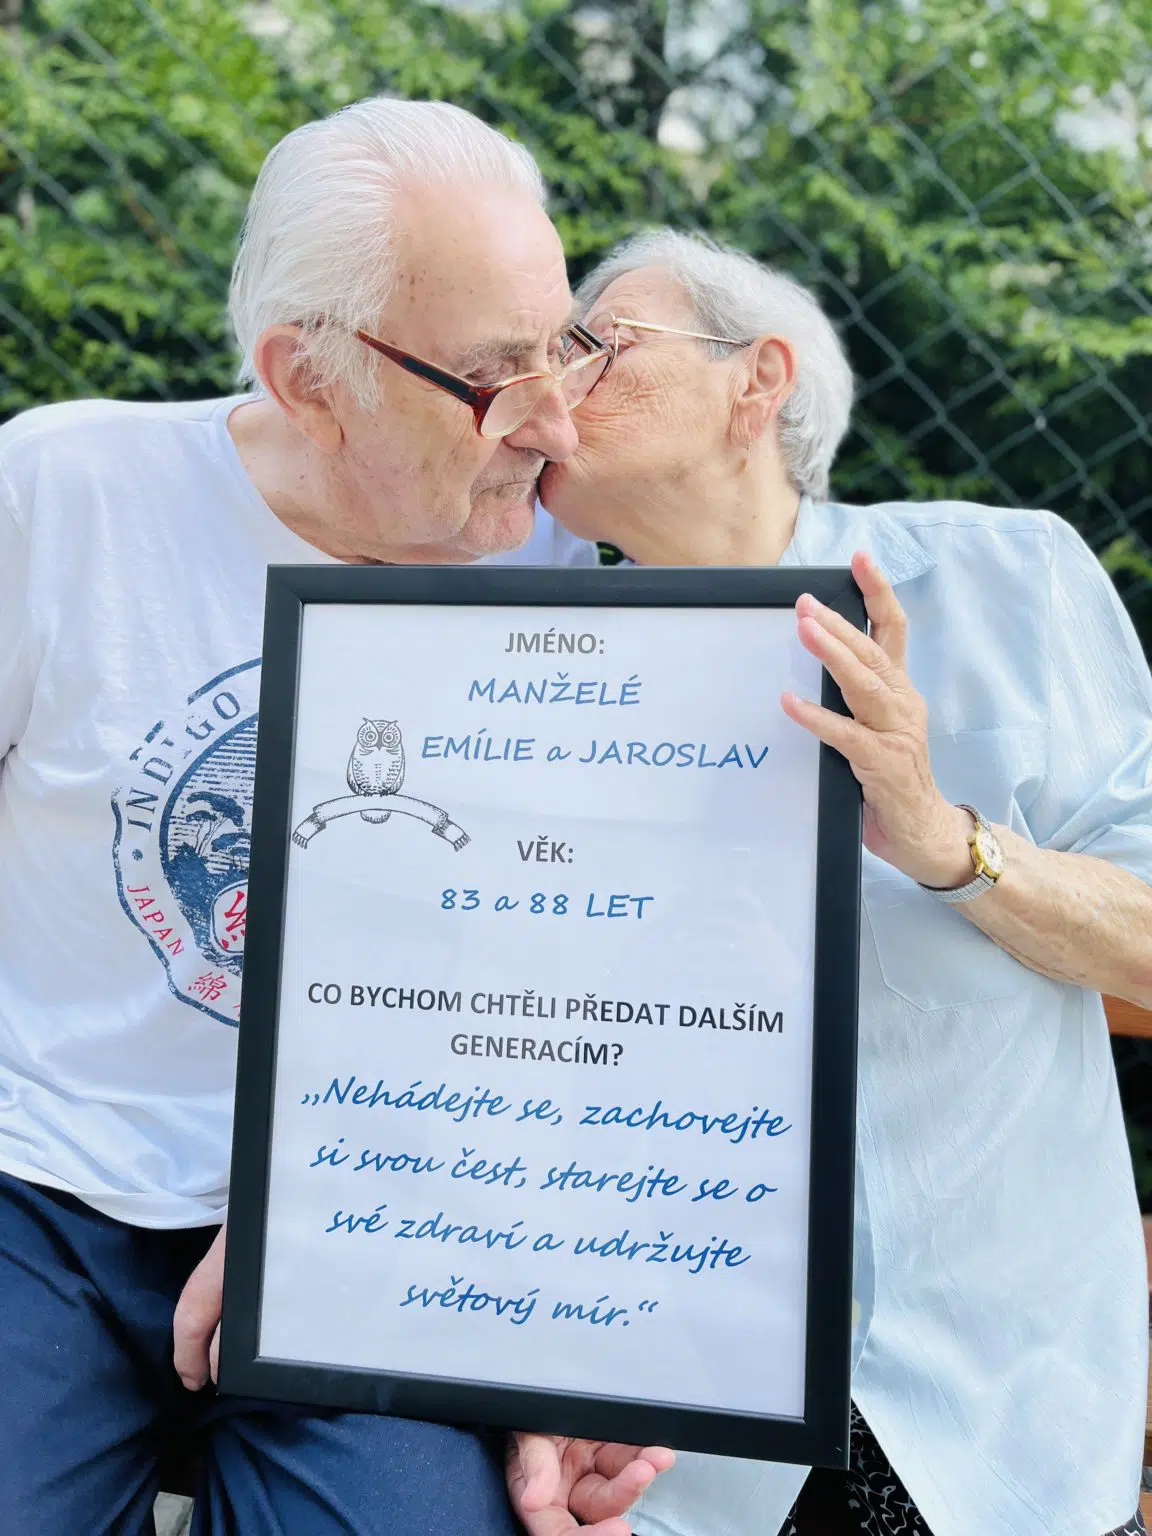 JMÉNO:
MANŽELÉ
EMÍLIE a JAROSLAV
VĚK:
83 a 88 LET
CO BYCHOM CHTĚLI PŘEDAT DALŠÍM
GENERACÍM?
„Nehádejte se, zachovejte
si svou čest, starejte se o
své zdraví a udržujte
světový mír.“
INDIGO
JAPAN
綿